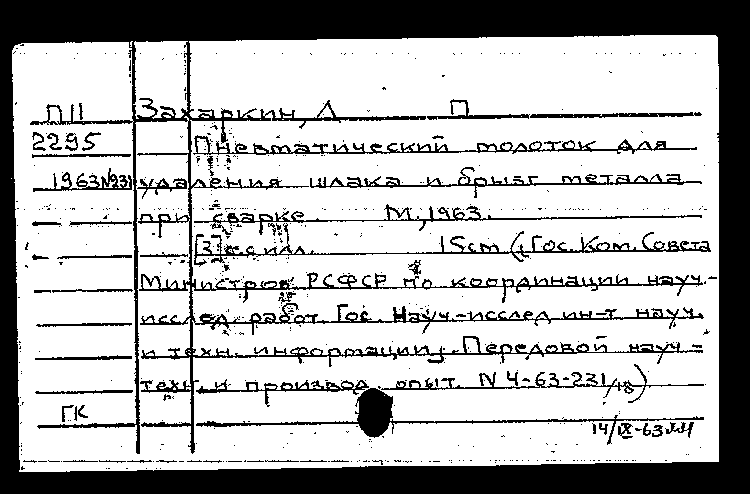 П11 Захаркин, Л П
2295 Пневматический молоток для
1963№231 удаления шлака и брызг металла
при сварке. М., 1963.
[2] с. с илл. 15cm (Гос. Ком. Совета
Министров РСФСР по координации науч.-
исслед. работ. Гос. Науч.-исслед ин-т науч.
и техн. информации. Передовой науч.-
техн. и производ. опыт. N 4-63-231/18)
ГК
14/IX-63